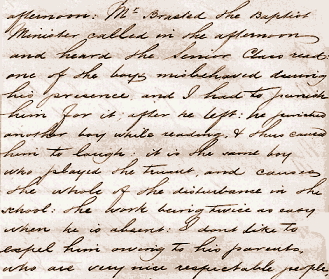 afternoon: Mr Brasted the Baptist
Minister called in the afternoon
and heard the Senior Class read:
one of the boys misbehaved during
his presence, and I had to punish
him for it: after he left: he punched
another boy while reading, & thus caused
him to laugh: it is the same boy
who played the truant, and causes
the whole of the disturbance in the
school: the work being twice as easy
when he is absent: I don't like to
expel him owing to his parents,
who are very nice respectable people